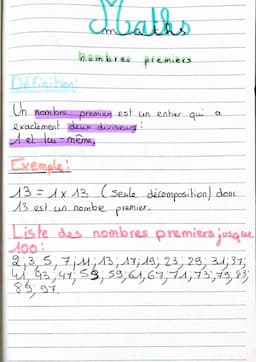 Maths
nombres premiers
Définition:
Un nombre premier est un entier qui a
exactement deux diviseurs:
1 et lui-même,
Exemple:
13 = 1 x 13 (seule décomposition) donc
13 est un nombe premier.
Liste des nombres premiers jusque
100:
2; 3; 5, 7; 11; 13; 17; 19; 23; 29; 31; 37;
41, 43; 47; 53; 59; 61; 67; 71; 73; 79; 83;
89; 97.